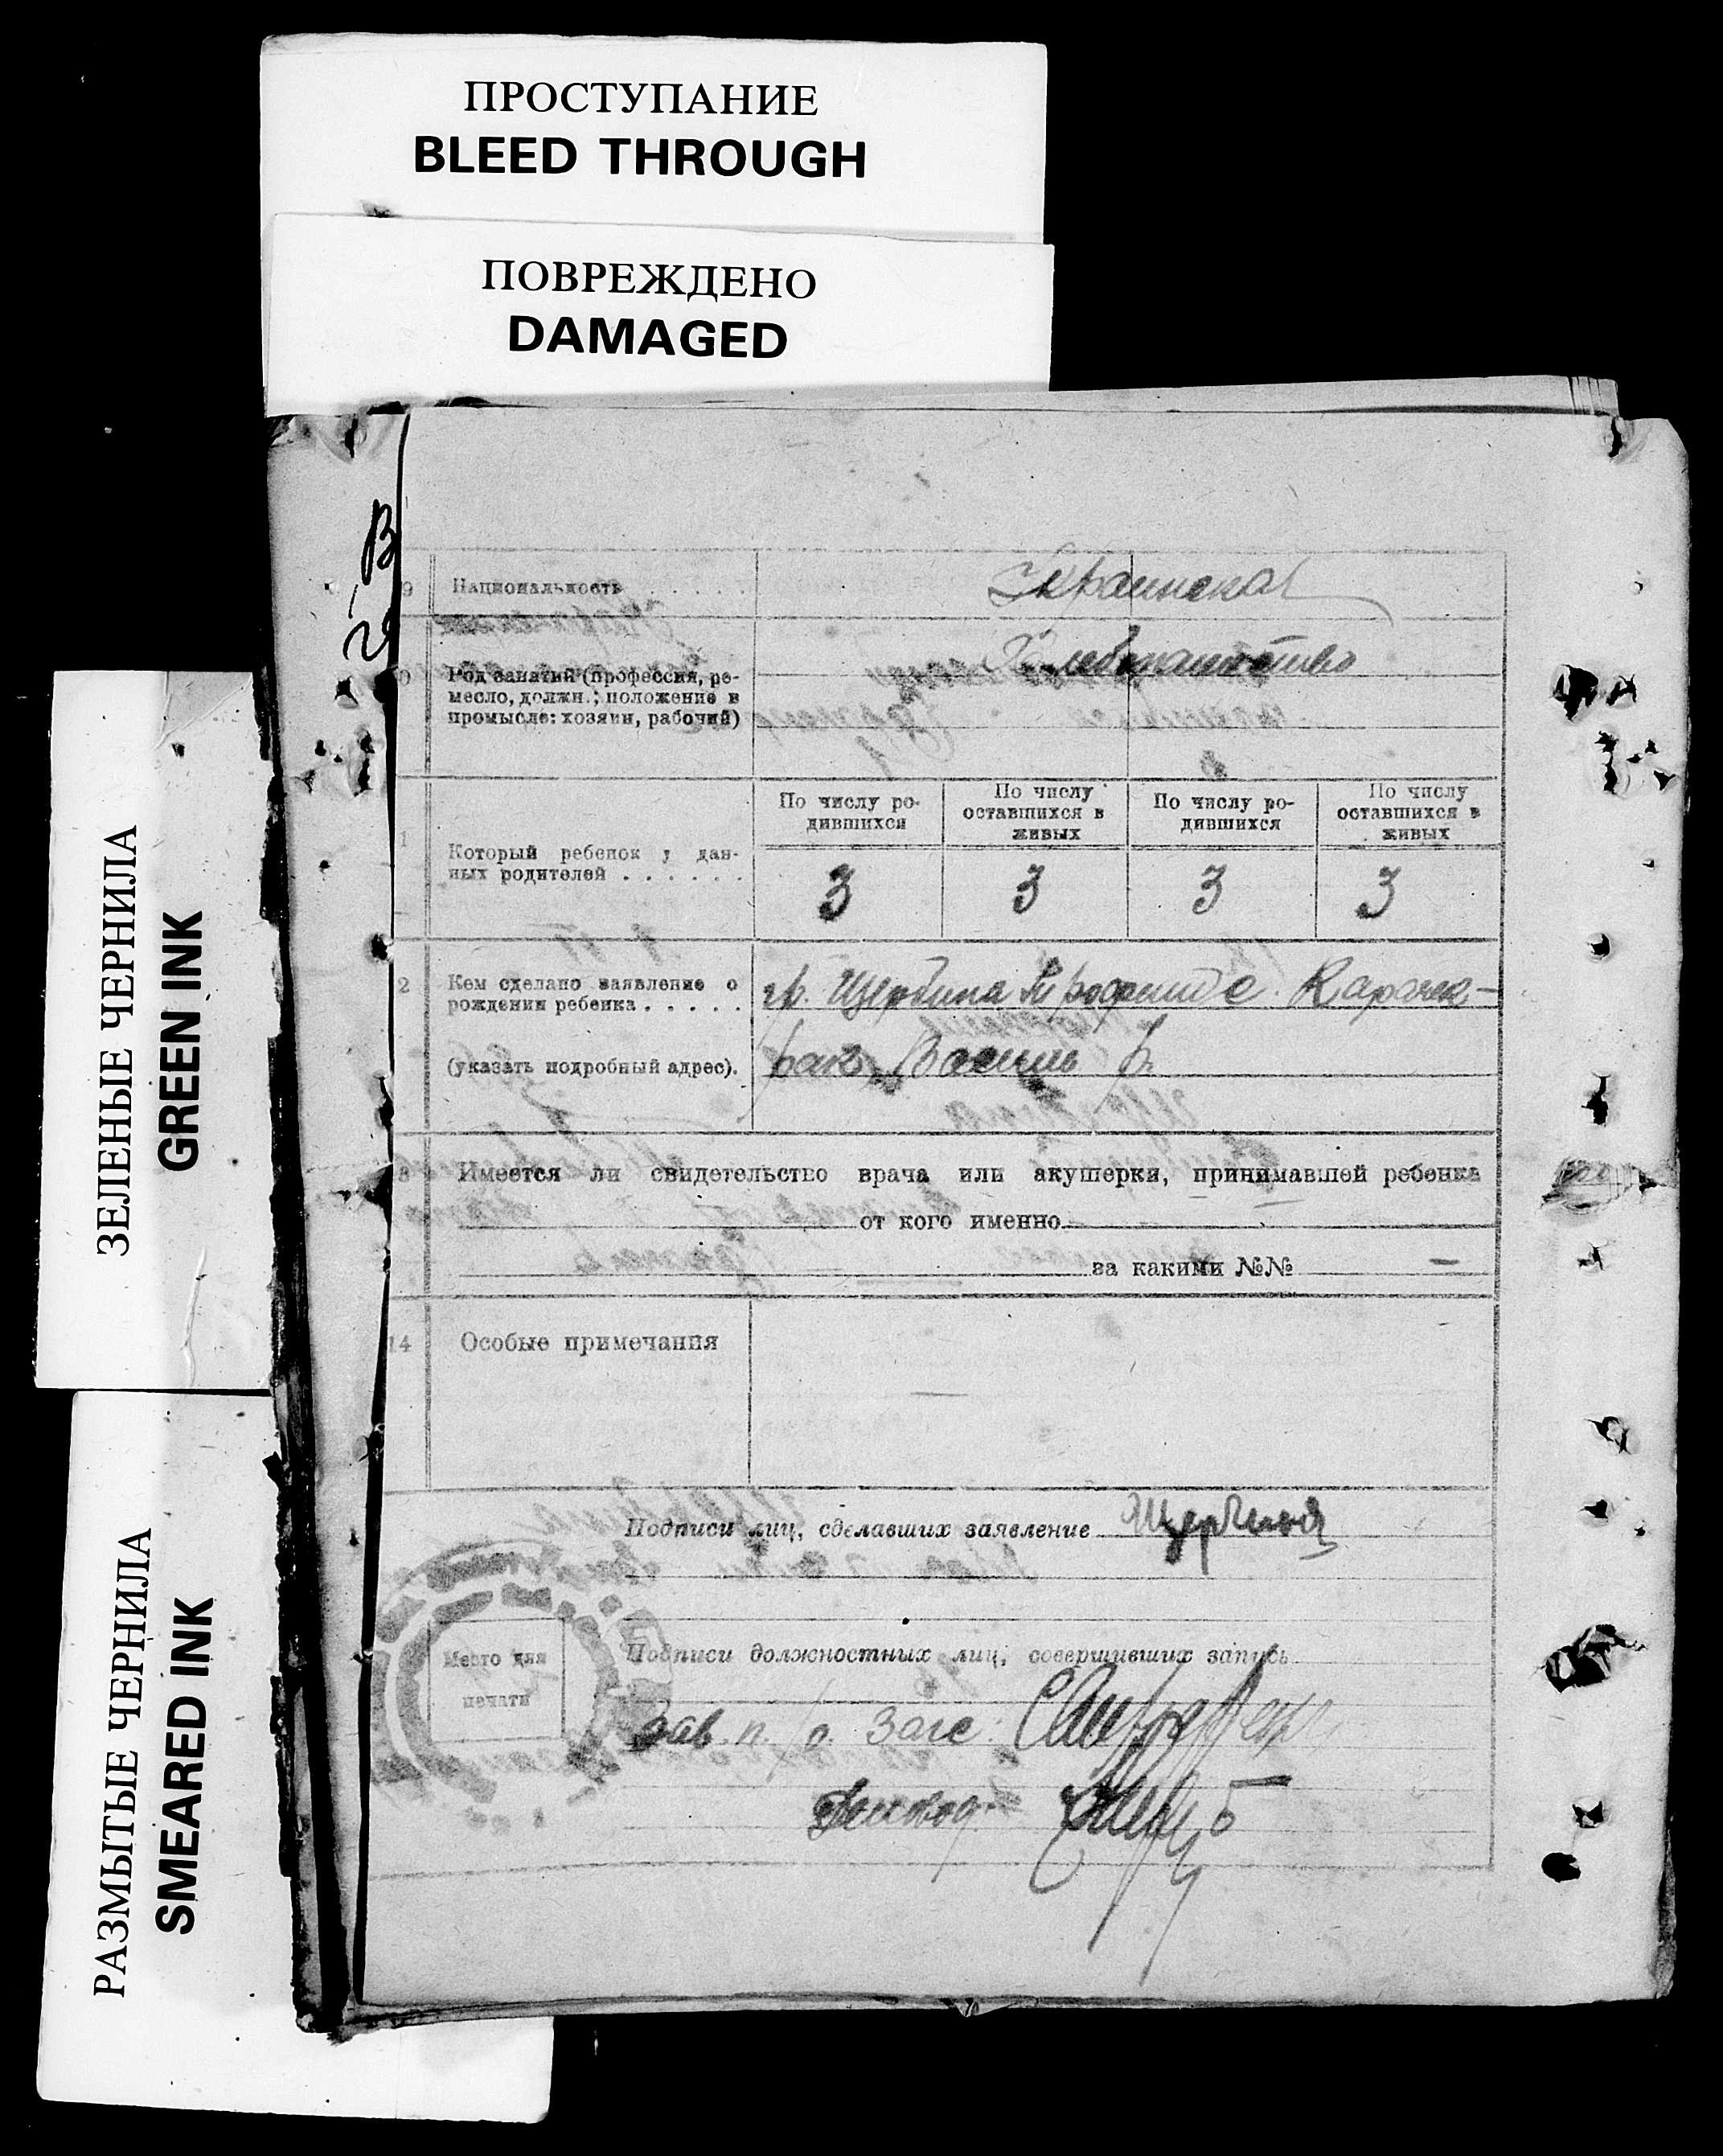 ПРОСТУПАНИЕ
BLEED THROUGH
ПОВРЕЖДЕНО
DAMAGED
ЗЕЛЕНЫЕ ЧЕРНИЛА
GREEN INK
РАЗМЫТЫЕ ЧЕРНИЛА
SMEARED INK
9 Национальность . . . . . . Украинская
Род занятий (профессия, ре-
месло, должн.; положение в
промысле: хозяин, рабочий)
Хлебопашество
1 Который ребенок у дан-
ных родителей . . . . . .
По числу ро-
дившихся
По числу
оставшихся в
живых
По числу ро-
дившихся
По числу
оставшихся в
живых
3 3 3 3
2 Кем сделано заявление о
рождении ребенка . . . . .
(указать подробный адрес).
гр. Щербина с. Карачек-
рак, Василь р.
3 Имеется ли свидетельство врача или акушерки, принимавшей ребенка
от кого именно
за какими №№ —
14 Особые примечания
—
Подписи лиц, сделавших заявление Щербина
Место для
печати
Подписи должностных лиц, совершивших запись
Зав. п/о. Загс.